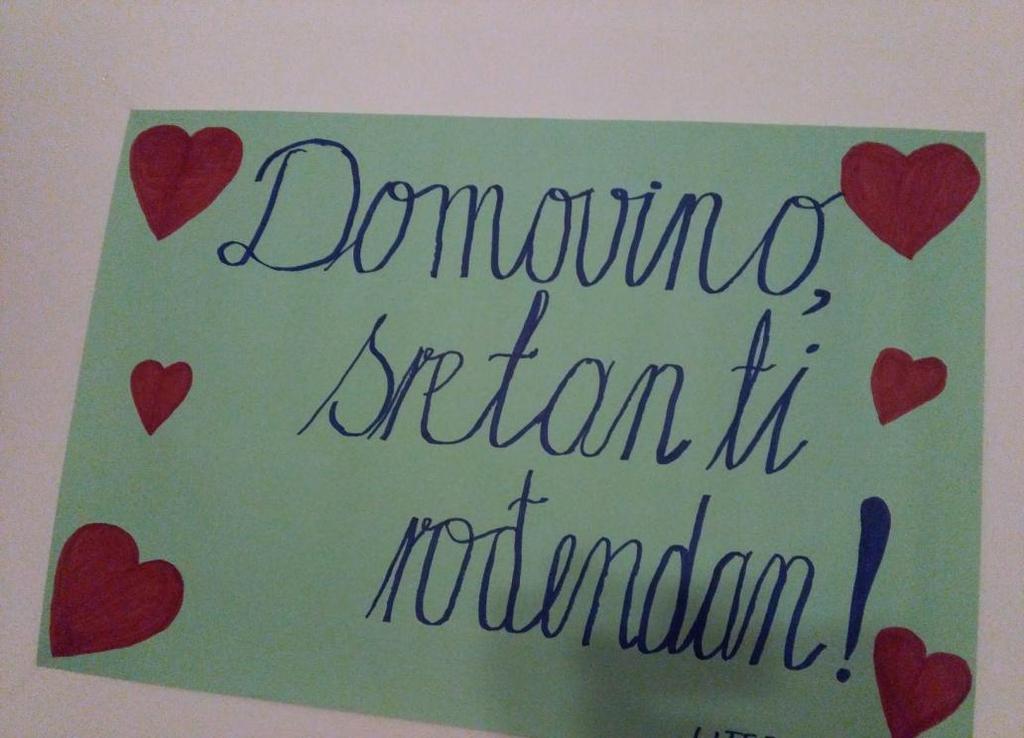 Domovino,
sretan ti
rođendan!